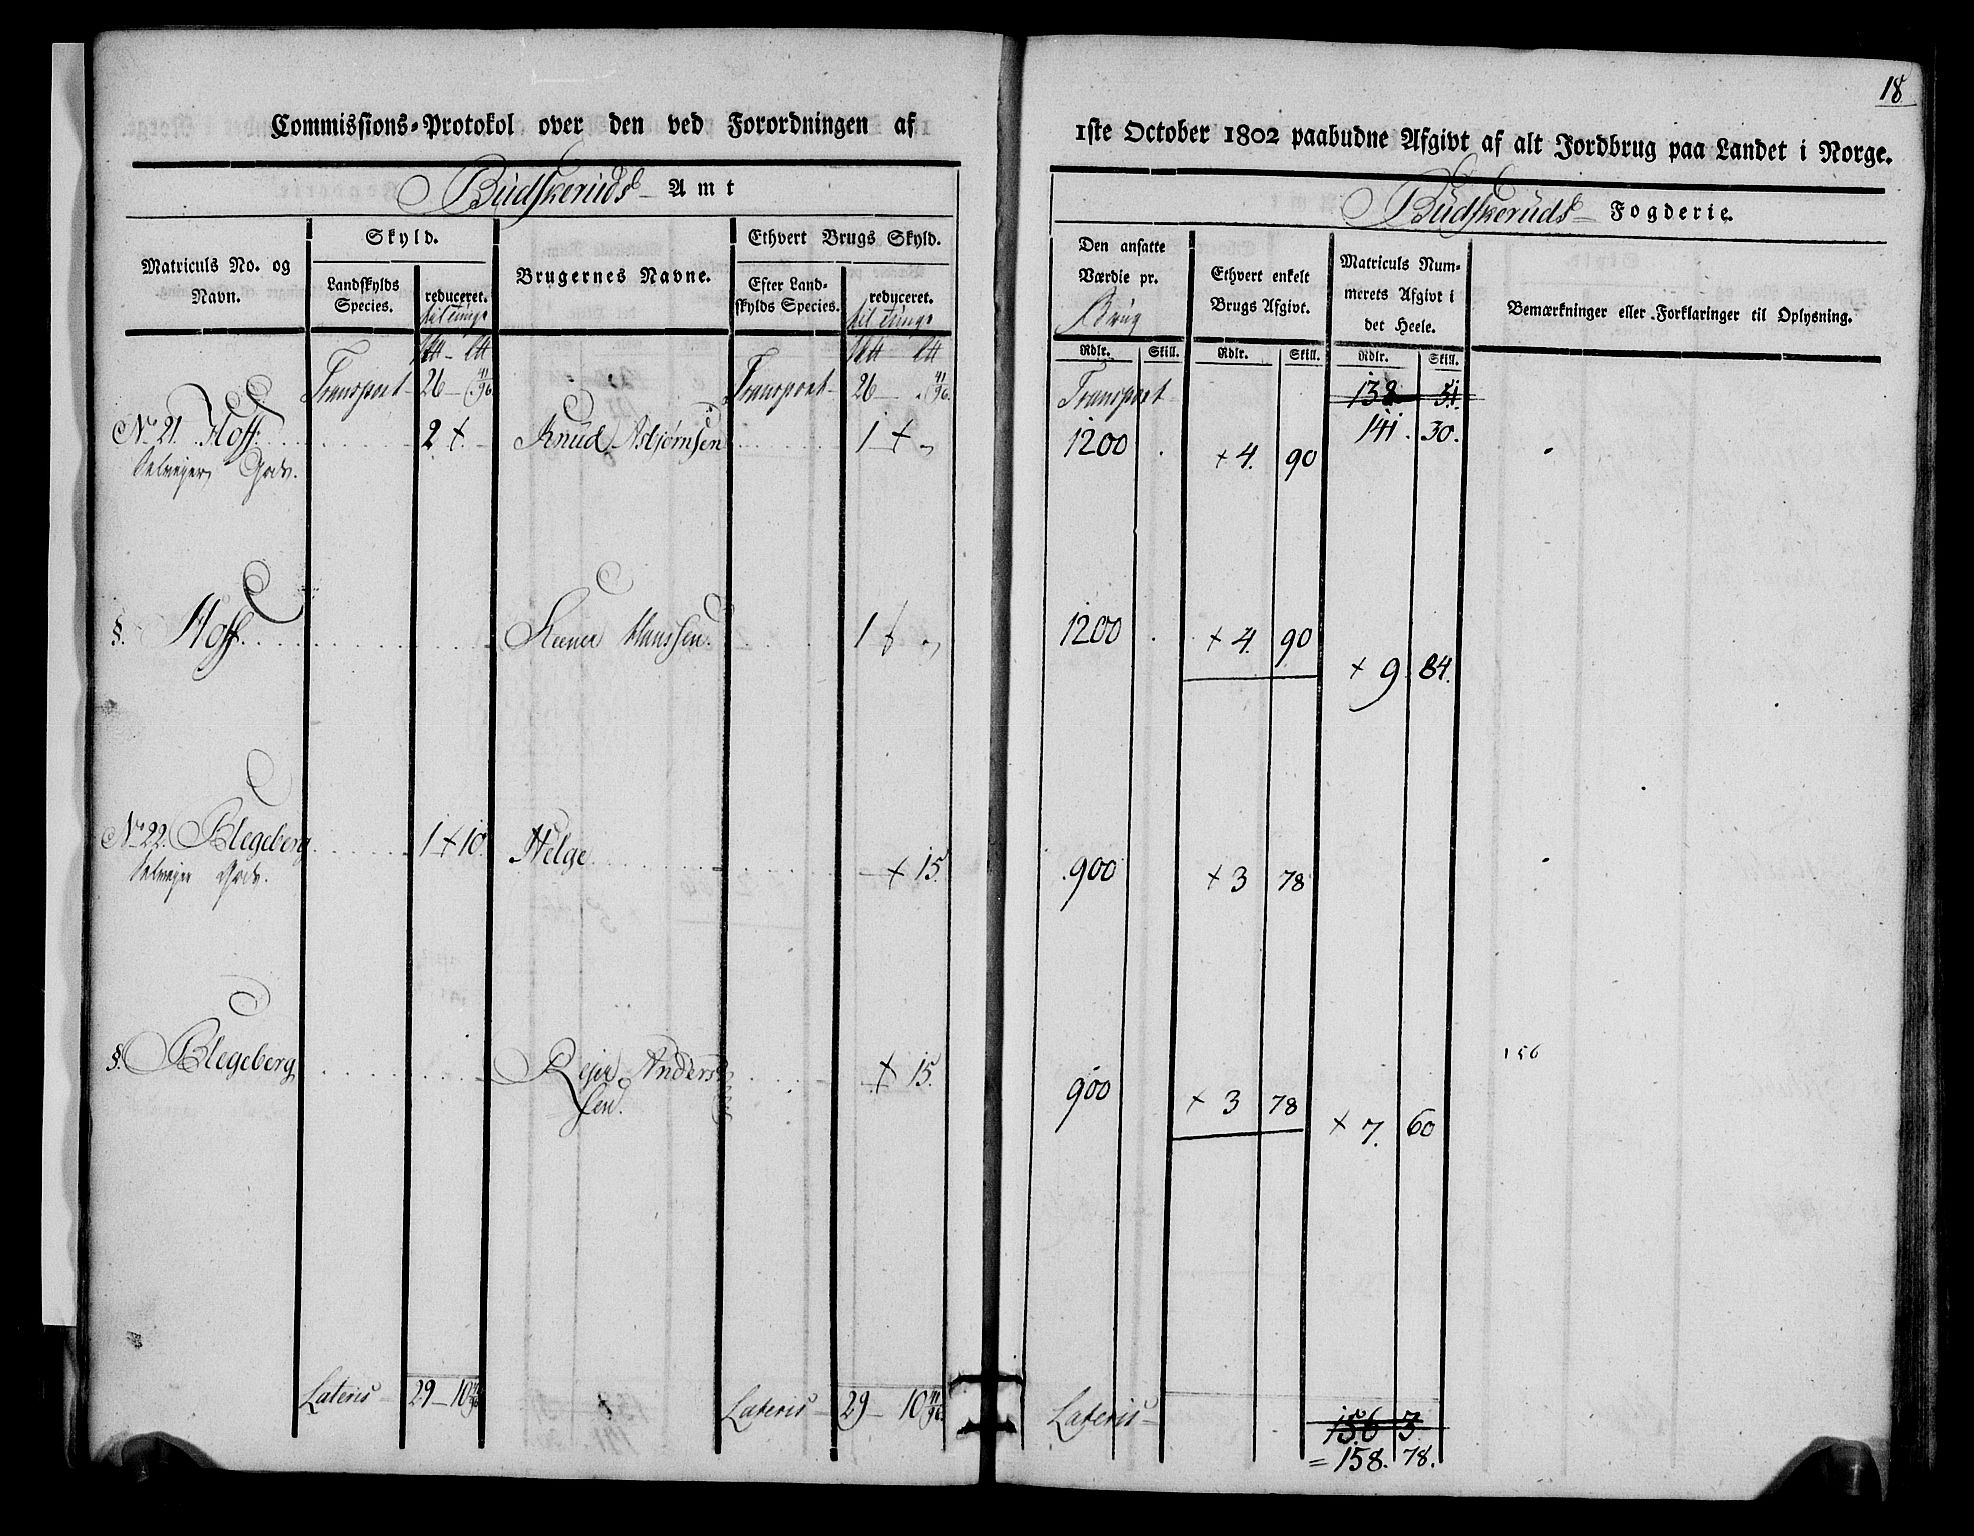 18
Commissions-Protokol over den ved Forordningen af
1ste October 1802 paabudne Afgivt af alt Jordbrug paa Landet i Norge.
Budskeruds Amt
Budskeruds Fogderie.
Matriculs No. og Navn.
Skyld.
Landskylds Species.
reduceret.
til tunge
Brugernes Navne.
Ethvert Brugs Skyld.
Efter Landskylds Species.
reduceret.
til tunge
Den ansatte Værdie pr.
Brug
Ethvert enkelt Brugs Afgivt.
Matriculs Nummerets Afgivt i det Heele.
Bemærkninger eller Forklaringer til Oplysning.
Rdlr. Skill. Rdlr. Skill. Rdlr. Skill.
Transport 26 41/96 Transport 26 41/96 Transport 138 51
141. 30.
No 21. Hoff 2 + Knud Asbjørnsen 1 + „ 1200 + 4. 90
Selvejer Gods.
§. Hoff 1 + „ Hanssen. 1200 + 4. 90
+ 9. 84.
No 22. Blegeberg 1 + 10. Helge + 15. 900 + 3 78
Selvejer Gods.
§. Blegeberg Rejer Anders + 15. 900 + 3 78
sen.
+ 7. 60
156
Lateris 29 10 41/96 Lateris 29 10 41/96 Lateris 156 3
= 158. 78.